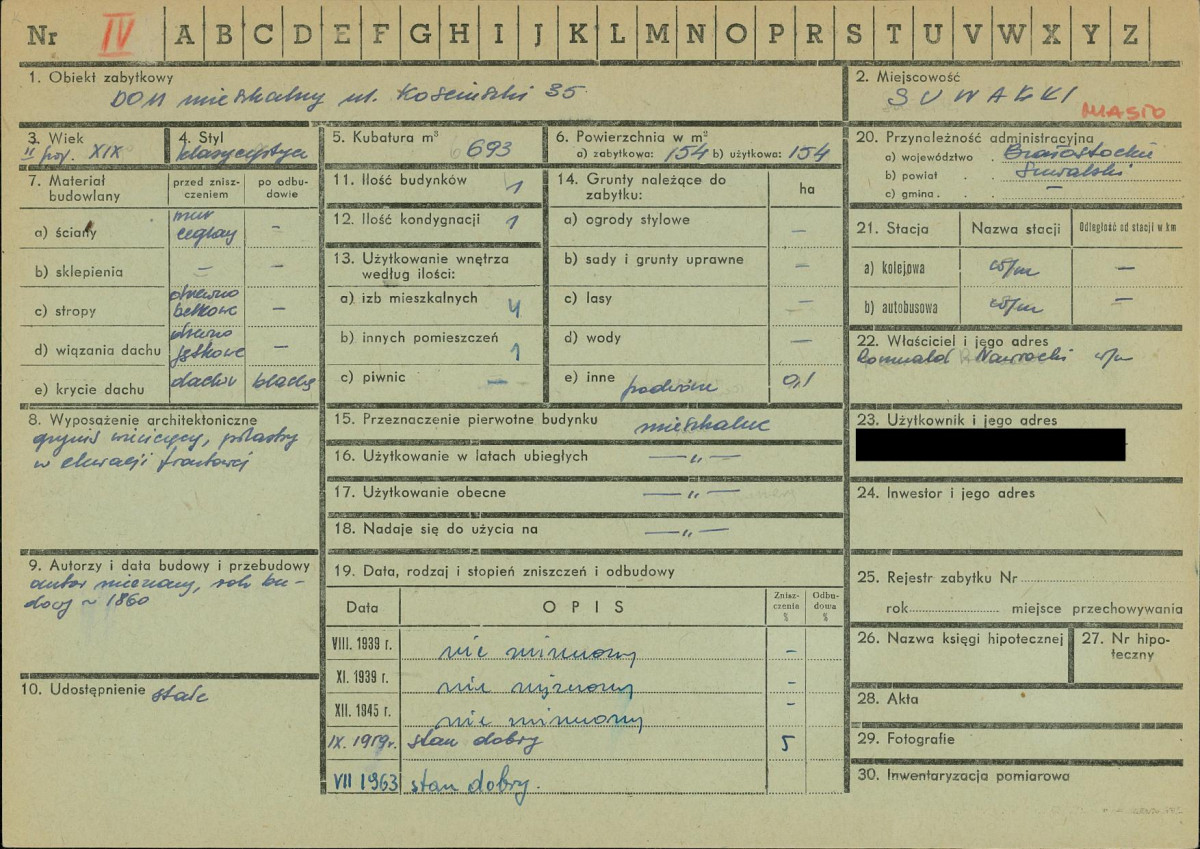 Nr IV A B C D E F G H I J K L M N O P R S T U V W X Y Z
1. Obiekt zabytkowy
DOM mieszkalny ul. Kościuszki 35
2. Miejscowość
SUWAŁKI
MIASTO
3. Wiek
II poł. XIX
4. Styl
klasycystycz
5. Kubatura m³ 693
6. Powierzchnia w m²
a) zabytkowa: 154 b) użytkowa: 154
7. Materiał budowlany
przed zniszczeniem
po odbudowie
a) ściany
mur
ceglany
–
b) sklepienia – –
c) stropy
drewno
belkowe
–
d) wiązania dachu
drewno
jętkowe
–
e) krycie dachu blachy
8. Wyposażenie architektoniczne
gzyms wieńczący, pilastry
w elewacji frontowej
9. Autorzy i data budowy i przebudowy
autor nieznany, rok bu-
dowy ~ 1860
10. Udostępnienie stałe
11. Ilość budynków 1
12. Ilość kondygnacji 1
13. Użytkowanie wnętrza
według ilości:
a) izb mieszkalnych 4
b) innych pomieszczeń 1
c) piwnic –
14. Grunty należące do
zabytku:
ha
a) ogrody stylowe –
b) sady i grunty uprawne –
c) lasy –
d) wody –
e) inne podwórze 0,1
15. Przeznaczenie pierwotne budynku mieszkalne
16. Użytkowanie w latach ubiegłych — „ —
17. Użytkowanie obecne — „ —
18. Nadaje się do użycia na — „ —
19. Data, rodzaj i stopień zniszczeń i odbudowy
Data
OPIS
Zniszczenia %
Odbudowa %
VIII. 1939 r. nie zniszczony –
XI. 1939 r. nie zniszczony –
XII. 1945 r. nie zniszczony –
IX. 1959 r. stan dobry 5
VII 1963 stan dobry.
20. Przynależność administracyjna
a) województwo . Białostockie
b) powiat . Suwalski
c) gmina . –
21. Stacja
Nazwa stacji
Odległość od stacji w km
a) kolejowa w/m –
b) autobusowa w/m –
22. Właściciel i jego adres
Romuald Nawrocki w/m
23. Użytkownik i jego adres
24. Inwestor i jego adres
25. Rejestr zabytku Nr
rok miejsce przechowywania
26. Nazwa księgi hipotecznej
27. Nr hipo-
teczny
28. Akta
29. Fotografie
30. Inwentaryzacja pomiarowa